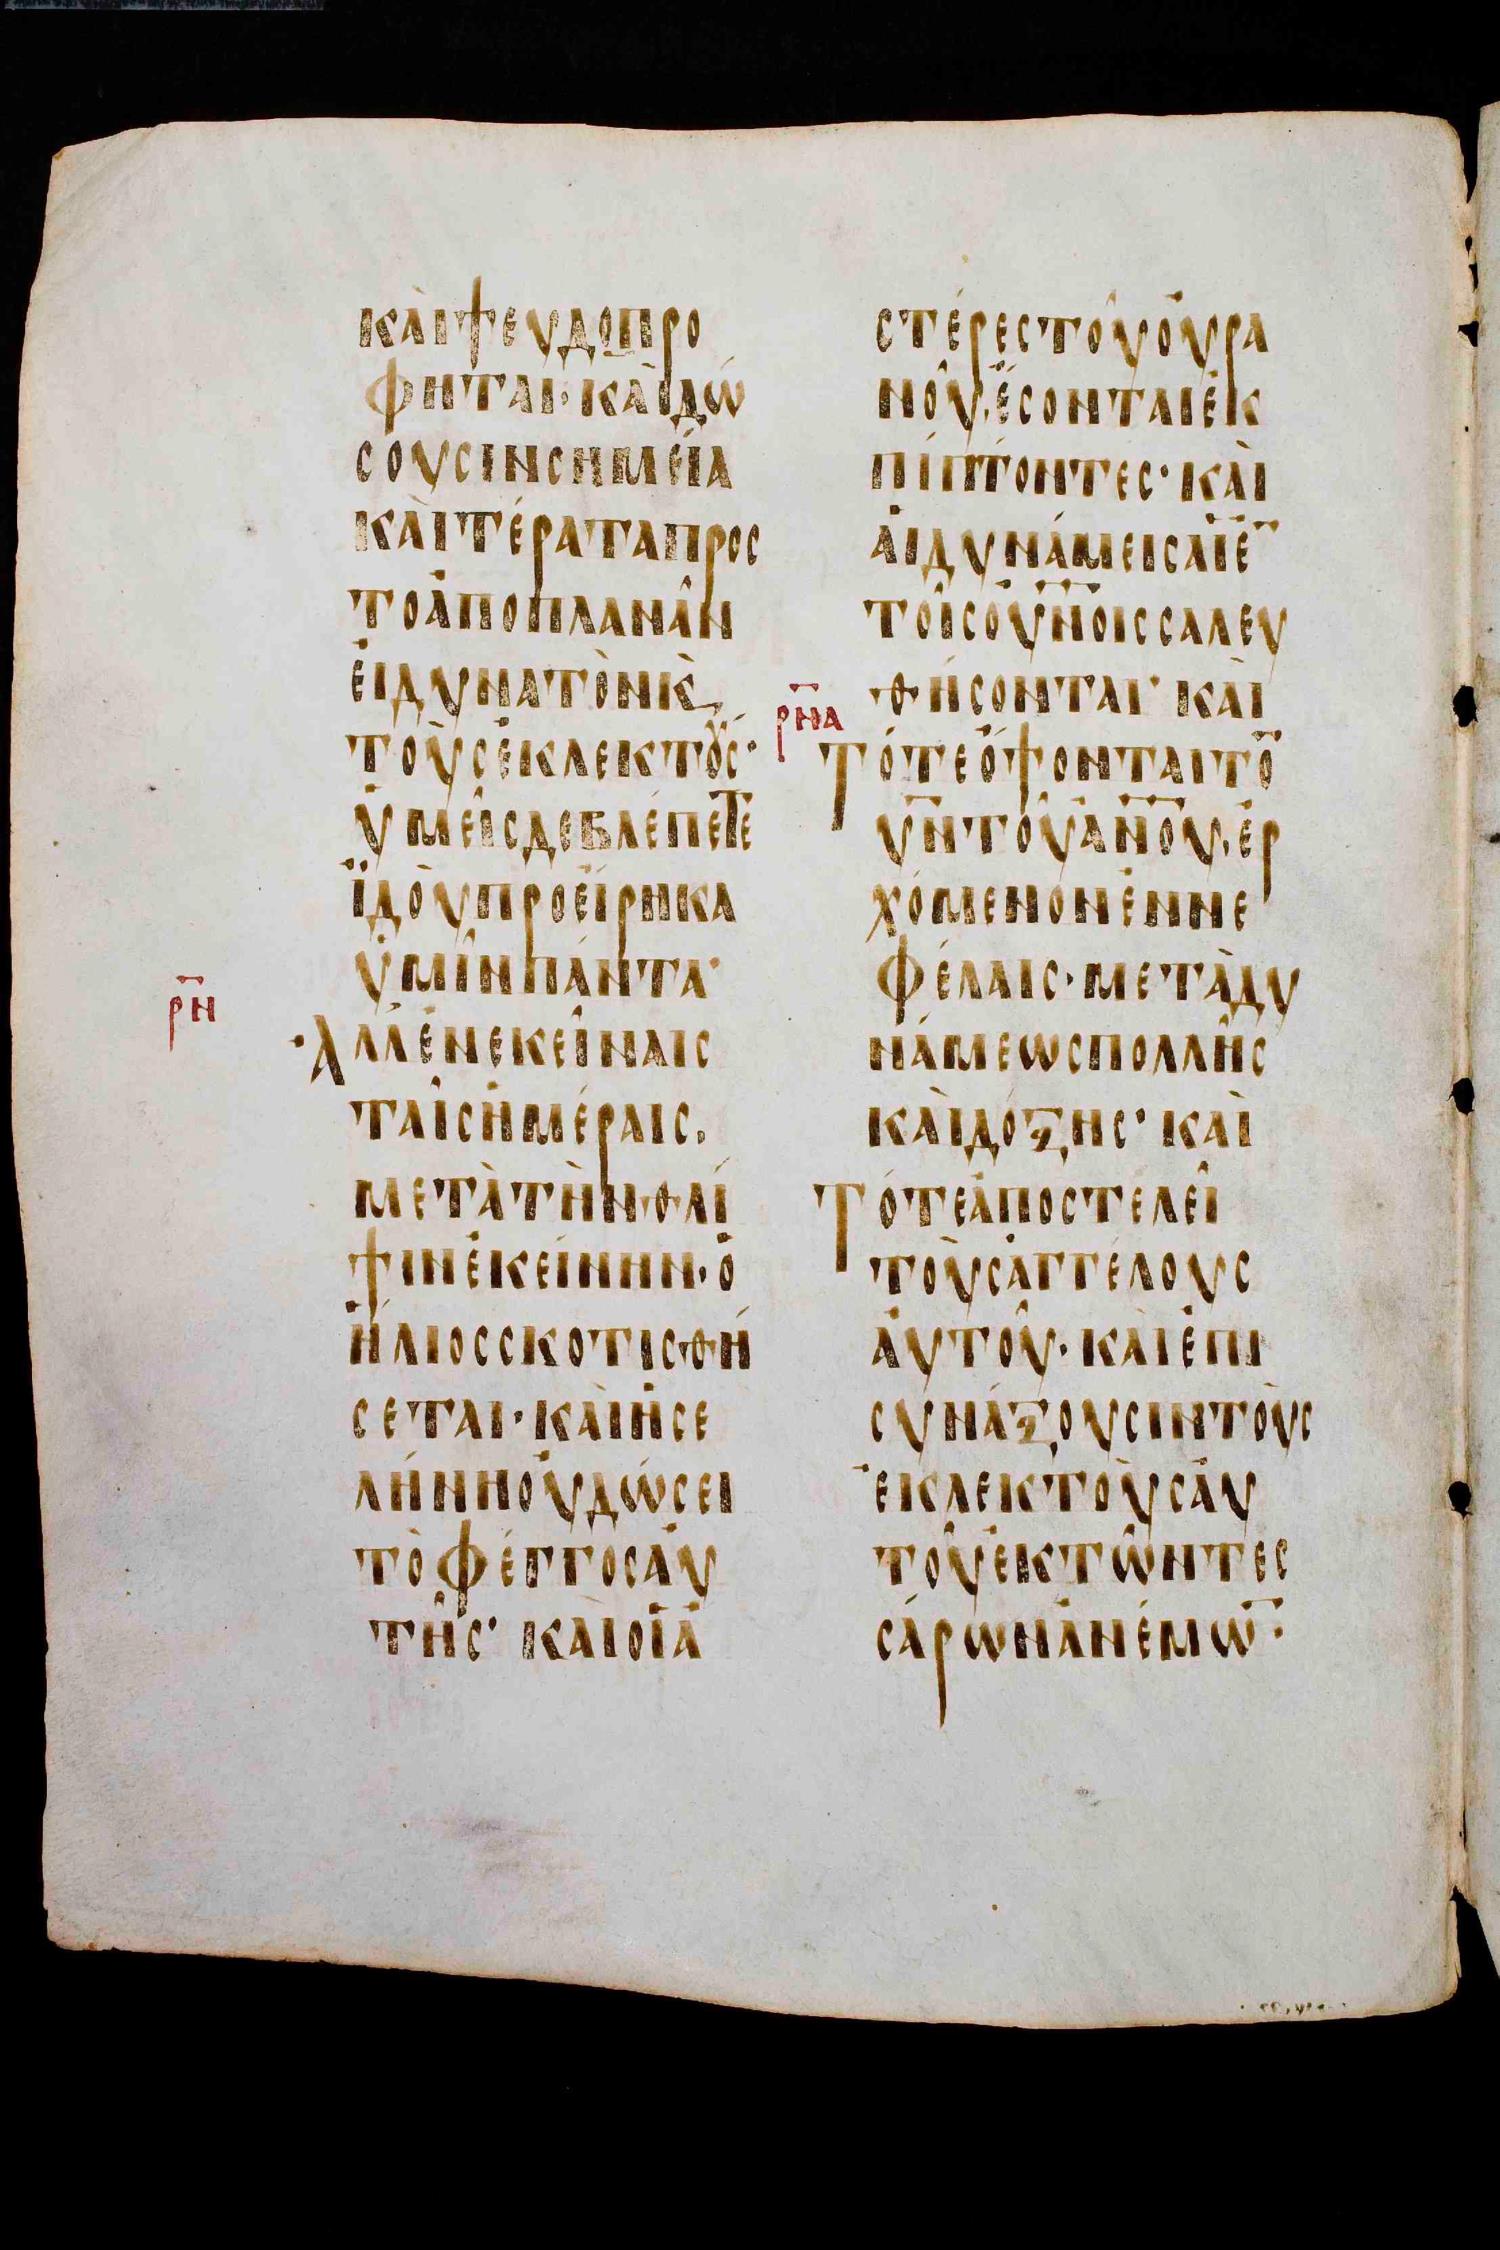 ΚΑῚΨΕΥΔΟΠΡΟ
ΦΗΤΑΙ· ΚΑῚΔΏ
ΣΟΥΣΙΝΣΗΜΕΊΑ
ΚΑῚΤΈΡΑΤΑΠΡΟΣ
ΤΟἈΠΟΠΛΑΝΑ͂Ν
ἘΙΔΥΝΑΤῸΝΚ̀,
ΤΟῪΣἘΚΛΕΚΤΟΎΣ·
ὙΜΕΙ͂ΣΔΕΒΛΈΠΕΤΕ
ΪΔΟῪΠΡΟΕΊΡΗΚΑ
ὙΜΙ͂ΝΠΆΝΤΑ·
ΡΝ̅
·ἈΛΛἘΝΕΚΕΊΝΑΙΣ
ΤΑΙ͂ΣἩΜΈΡΑΙΣ,
ΜΕΤᾺΤῊΝΘΛΊ
ΨΙΝἘΚΕΊΝΗΝ· Ὁ
ἭΛΙΟΣΣΚΟΤΙΣΘΉ
ΣΕΤΑΙ· ΚΑῚἩΣΕ
ΛΉΝΗΟΥ̓ΔΏΣΕΙ
ΤῸΦΈΓΓΟΣΑΥ̓
ΤΗ͂Σ· ΚΑῚΟΙἉ
ΣΤΈΡΕΣΤΟΥ͂ΟΥ̓ΡΑ
ΝΟΥ͂, ἜΣΟΝΤΑΙἘΚ
ΠΊΠΤΟΝΤΕΣ· ΚΑῚ
ἉΙΔΥΝΆΜΕΙΣΑἹἘ̅
ΤΟΙ͂ΣΟΥ̅Ν̅Ο̅ΙΣΣΑΛΕΥ
ΘΉΣΟΝΤΑΙ· ΚΑῚ
ΡΝΑ̅
ΤΌΤΕὌΨΟΝΤΑΙΤΟ̅
Υ̅Ν̅ΤΟΥ͂Α̅Ν̅Ο̅Υ, ἘΡ
ΧΌΜΕΝΟΝἘΝΝΕ
ΦΈΛΑΙΣ· ΜΕΤᾺΔΥ
ΝΆΜΕΩΣΠΟΛΛΗ͂Σ
ΚΑῚΔΌΞΗΣ· ΚΑῚ
ΤΌΤΕἈΠΟΣΤΕΛΕΙ͂
ΤΟῪΣἈΓΓΈΛΟΥΣ
ἈΥΤΟΥ͂· ΚΑῚἘΠΙ
ΣΥΝΆΞΟΥΣΙΝΤΟῪΣ
ἘΚΛΕΚΤΟῪΣἈΥ
ΤΟΥ͂ἘΚΤΩ͂ΝΤΕΣ
ΣΆΡΩΝἈΝΈΜΩ̅·